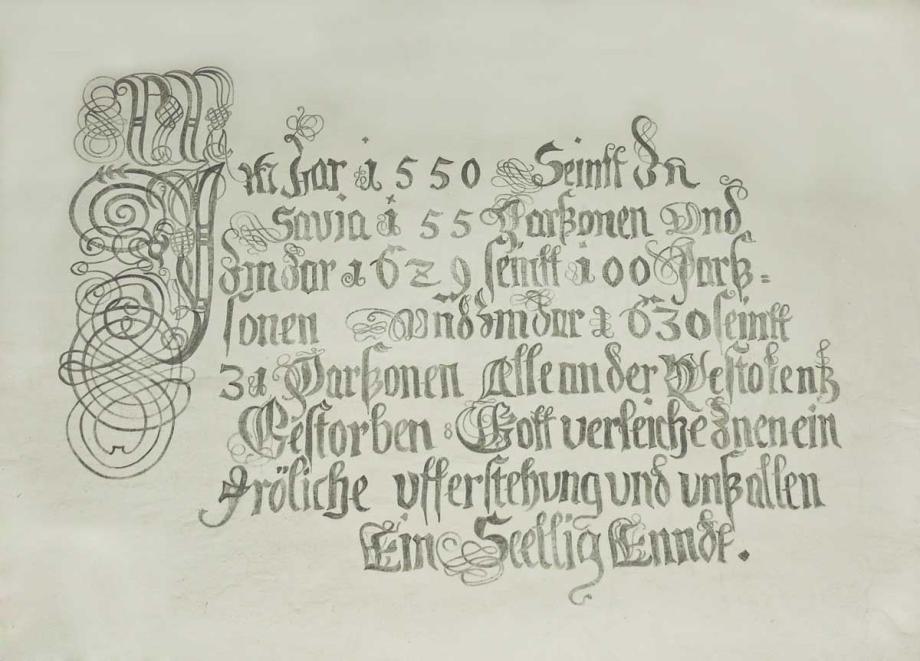 Im Jar 1550 Seintt In
Savia 55 Parßonen Vnd
Im Jar 1629 seintt 100 Parß=
sonen Vnd Im Jar 1630 seintt
31 Parßonen Alle an der Pestolentz
Gestorben : Gott verleiche Inen ein
Fröliche vfferstehung vnd vnß allen
Ein Seellig Enndt.